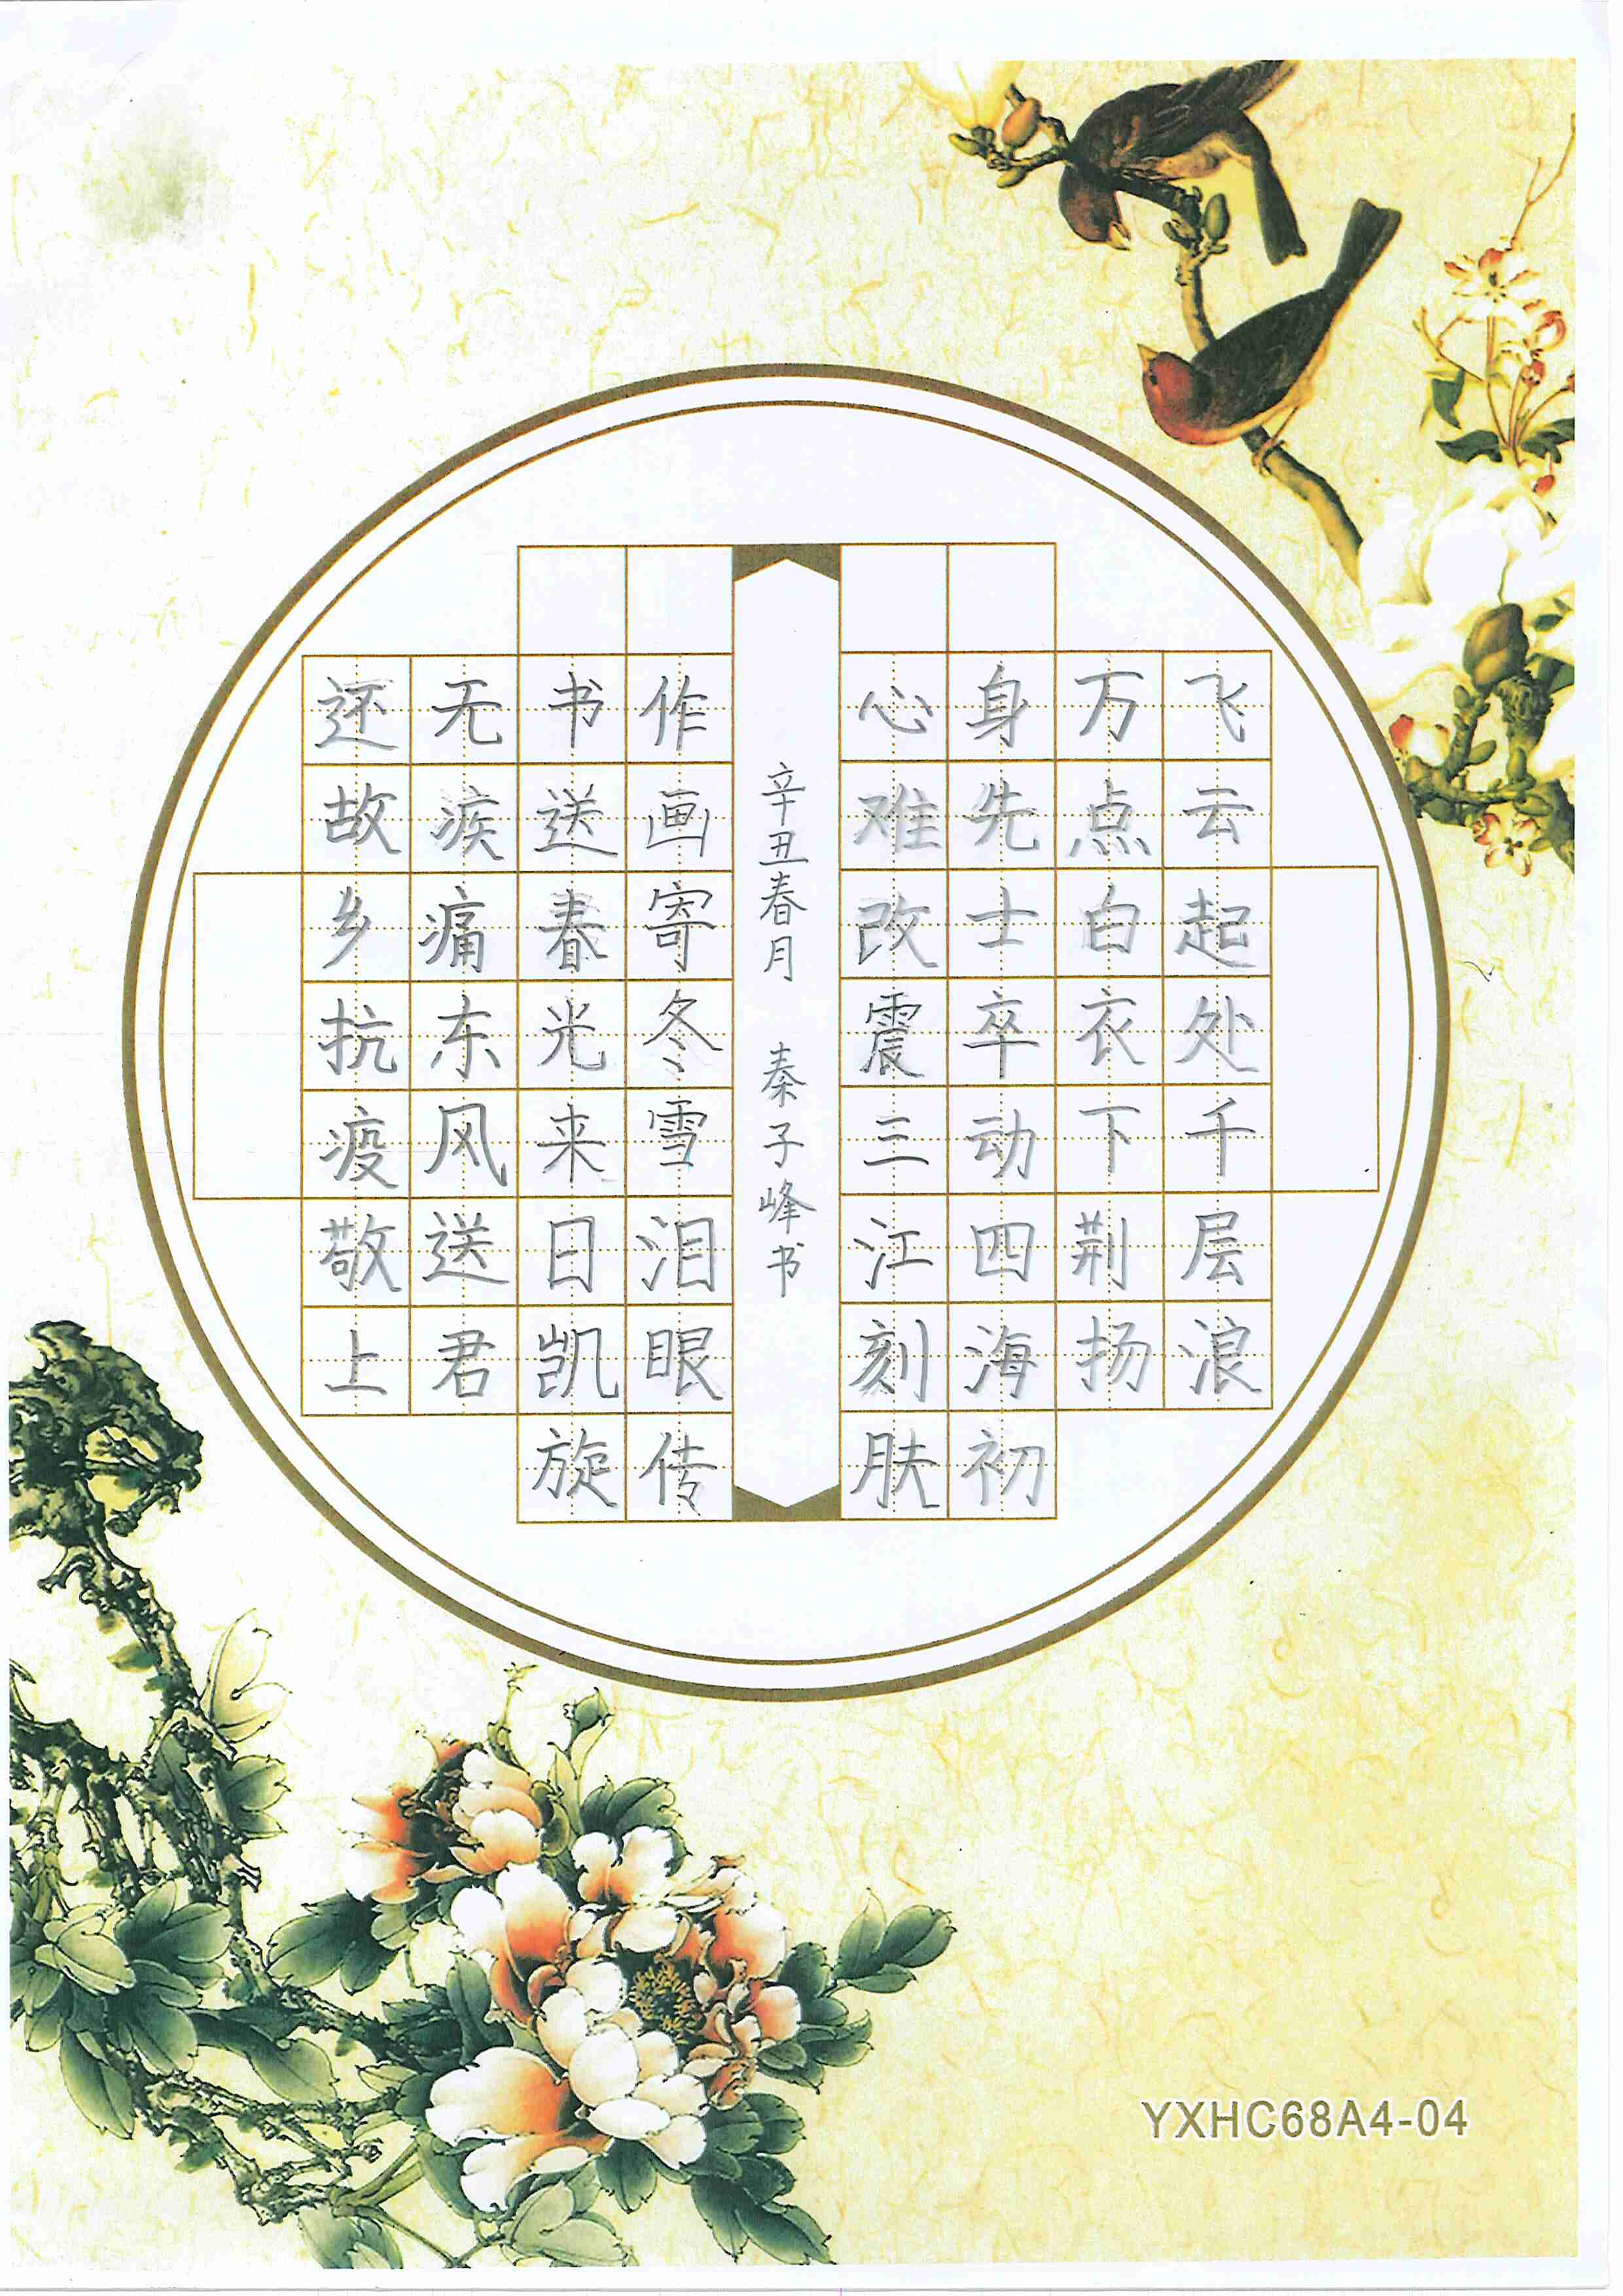 飞云起处千层浪
万点白衣下荆扬
身先士卒动四海初
心难改震三江刻肤
作画寄冬雪泪眼传
书送春光来日凯旋
无疾痛东风送君
还故乡抗疫敬上
辛丑春月 秦子峰书
YXHC68A4-04